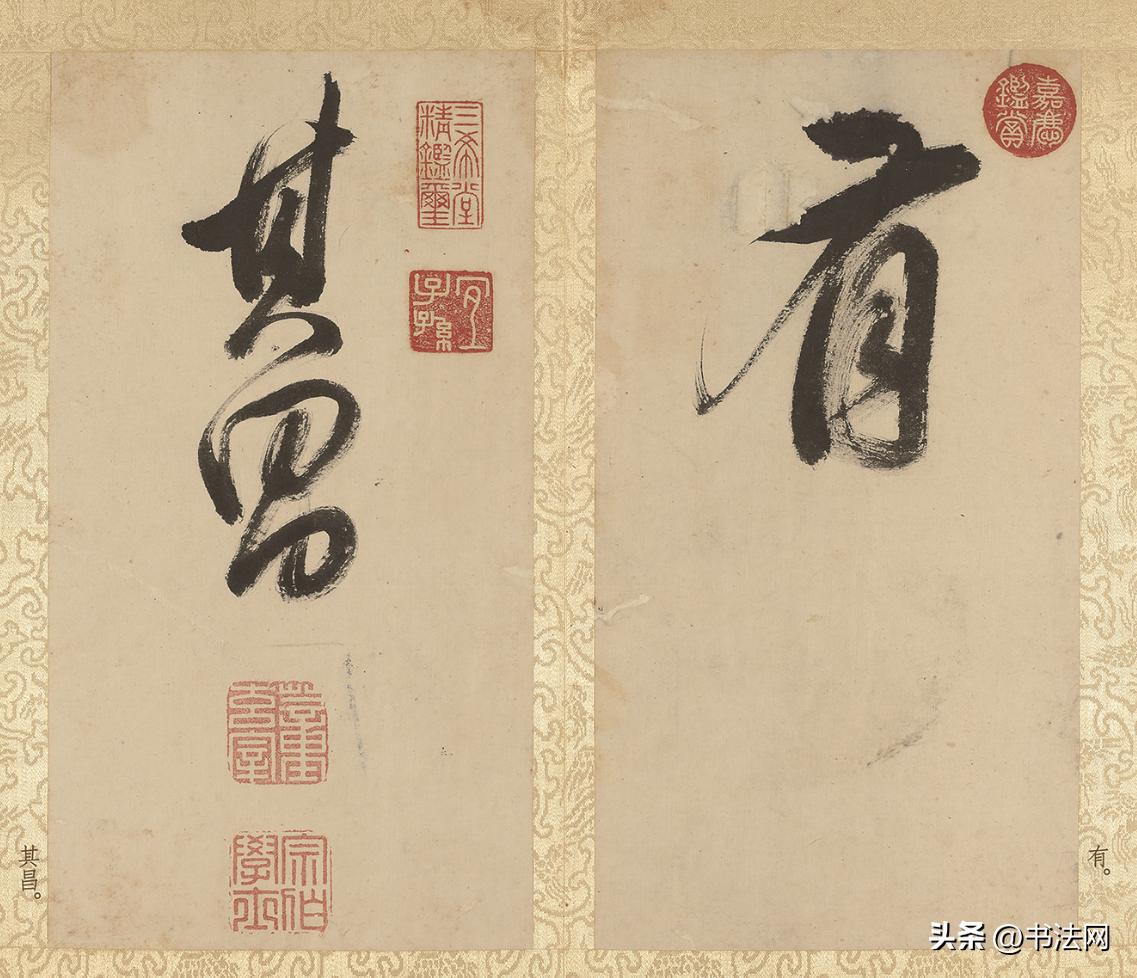 嘉慶鑑賞
有
有。
三希堂精鑑璽
宜子孫
其昌
宗伯學士
其昌。
头条 @书法网